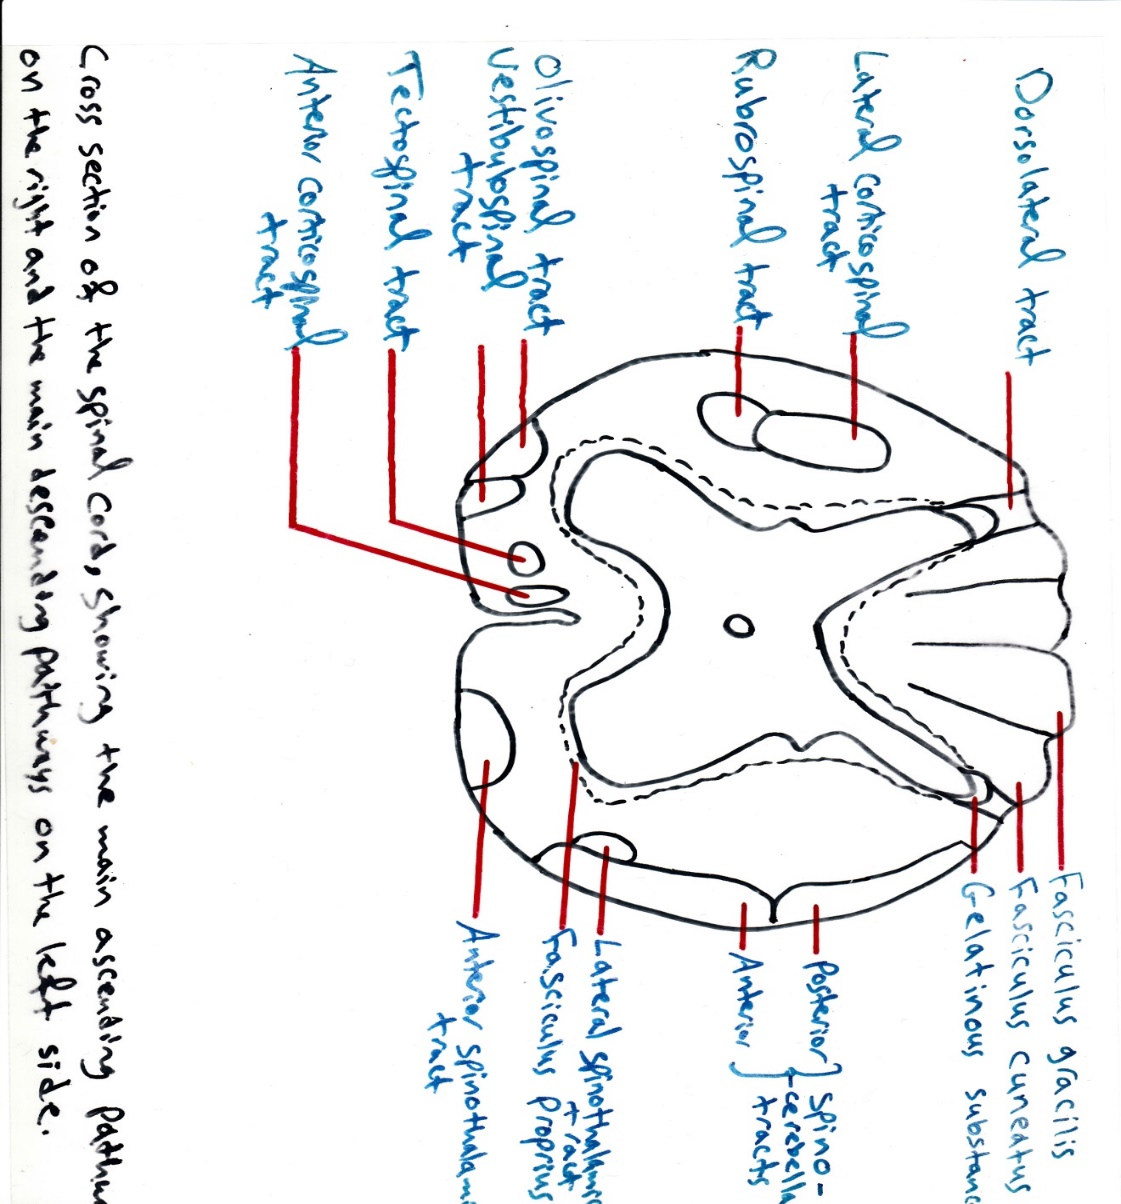 Dorsolateral tract
Lateral corticospinal
tract
Rubrospinal tract
Olivospinal tract
Vestibulospinal
tract
Tectospinal tract
Anterior corticospinal
tract
Fasciculus gracilis
Fasciculus cuneatus
Gelatinous substanc
Posterior
Anterior
Spino-
cerebella
tracts
Lateral spinothalamic
tract
Fasciculus proprius
Anterior spinothalami
tract
Cross section of the spinal cord, showing the main ascending pathw
on the right and the main descending pathways on the left side.